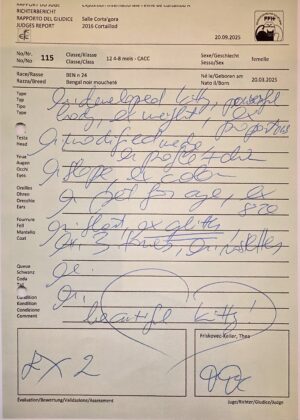 RICHTERBERICHT
RAPPORTO DEL GIUDICE
JUDGES REPORT
Salle Cort'agora
2016 Cortaillod
FFH
20.09.2025
No/Nr.
No/No
115
Classe/Klasse
Classe/Class
12 4-8 mois - CACC
Sexe/Geschlecht
Sesso/Sex
femelle
Race/Rasse
Razza/Breed
BEN n 24
Bengal noir moucheté
Né le/Geboren am
Nato il/Born
20.03.2025
Type
Typ
Tipo
Type
developed kitty, powerful
body, weight, ex
proportions
Tête
Kopf
Testa
Head
modified wedge
profile + chin
Yeux
Augen
Occhi
Eyes
shape, color
Oreilles
Ohren
Orecchie
Ears
set for age, ex
size
Fourrure
Fell
Mantello
Coat
short, ex glitter
3 rosettes
Queue
Schwanz
Coda
Tail
Condition
Kondition
Condizione
Condition
beautiful kitty!
EX 2
Friskovec-Keller, Thea
Evaluation/Bewertung/Validazione/Assessment
Juge/Richter/Giudice/Judge